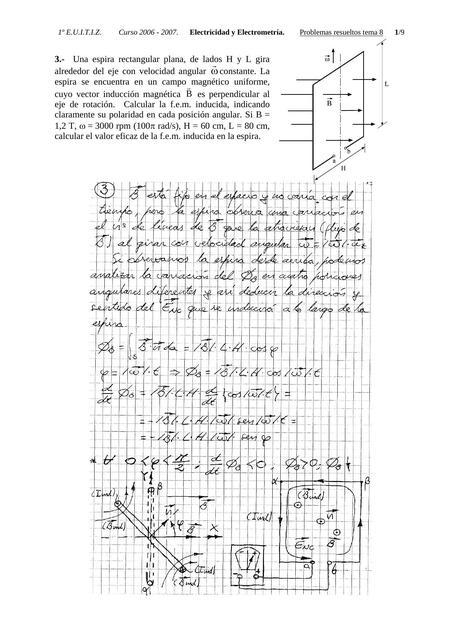 1º E.U.I.T.I.Z. Curso 2006 - 2007. Electricidad y Electrometría. Problemas resueltos tema 8 1/9
3.- Una espira rectangular plana, de lados H y L gira
alrededor del eje con velocidad angular ω constante. La
espira se encuentra en un campo magnético uniforme,
cuyo vector inducción magnética B es perpendicular al
eje de rotación. Calcular la f.e.m. inducida, indicando
claramente su polaridad en cada posición angular. Si B =
1,2 T, ω = 3000 rpm (100π rad/s), H = 60 cm, L = 80 cm,
calcular el valor eficaz de la f.e.m. inducida en la espira.
ω
B
L
a
b
H
3
B está fijo en el espacio y no varía con el
tiempo, pero la espira observa una variación en
el nº de líneas de B que la atraviesan (flujo de
B) al girar con velocidad angular ω = |ω|·
Si observamos la espira desde arriba, podemos
analizar la variación del ΦB en cuatro posiciones
angulares diferentes y así deducir la dirección y
sentido del ENC que se inducirá a lo largo de la
espira.
ΦB = ∫ B·n da = |B|·L·H·cos φ
φ = |ω|·t ⇒ ΦB = |B|·L·H·cos|ω|·t
d/dt ΦB = |B|·L·H·d/dt {cos|ω|·t} =
= -|B|·L·H·|ω|·sen|ω|·t =
= -|B|·L·H·|ω|·sen φ
∀ 0<φ<π/2 ; d/dt ΦB<0 ; ΦB>0; ΦB
Y β
(Iind) B
(Bind) n φ B X
(Iind)
(Bind)
α
α β
(Bind)
(Iind) n
B
ENC
a b